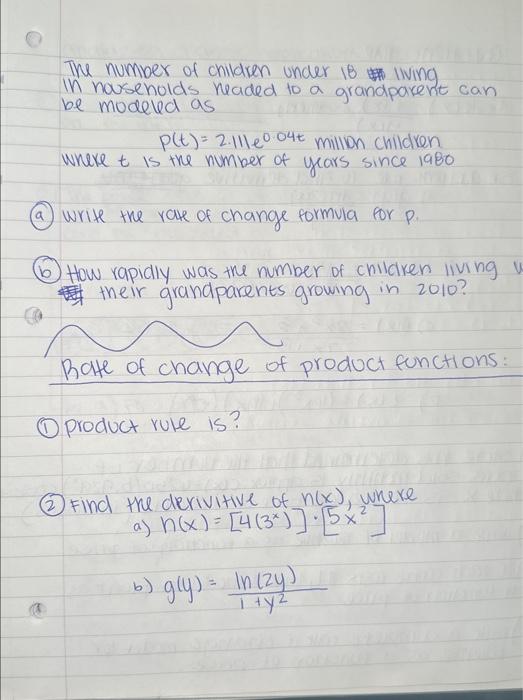 The number of children under 18 living
in households headed to a grandparent can
be modeled as
p(t) = 2.111e^0.04t million children
where t is the number of years since 1980
(a) write the rate of change formula for p.
(b) How rapidly was the number of children living w
their grandparents growing in 2010?
Rate of change of product functions:
(1) product rule is?
(2) Find the derivitive of n(x), where
a) n(x) = [4(3^x)] · [5x^2]
b) g(y) = ln(2y) / 1+y^2